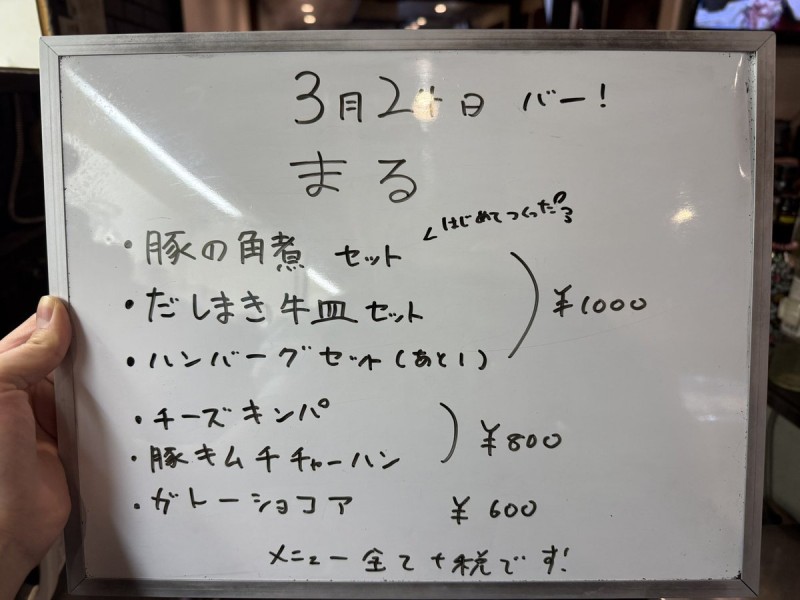 3月24日 バー!
まる
・豚の角煮 セット
はじめてつくった
・だしまき牛皿セット
・ハンバーグセット(あと1)
¥1000
・チーズキンパ
・豚キムチチャーハン
¥800
・ガトーショコア ¥600
メニュー全て+税です!